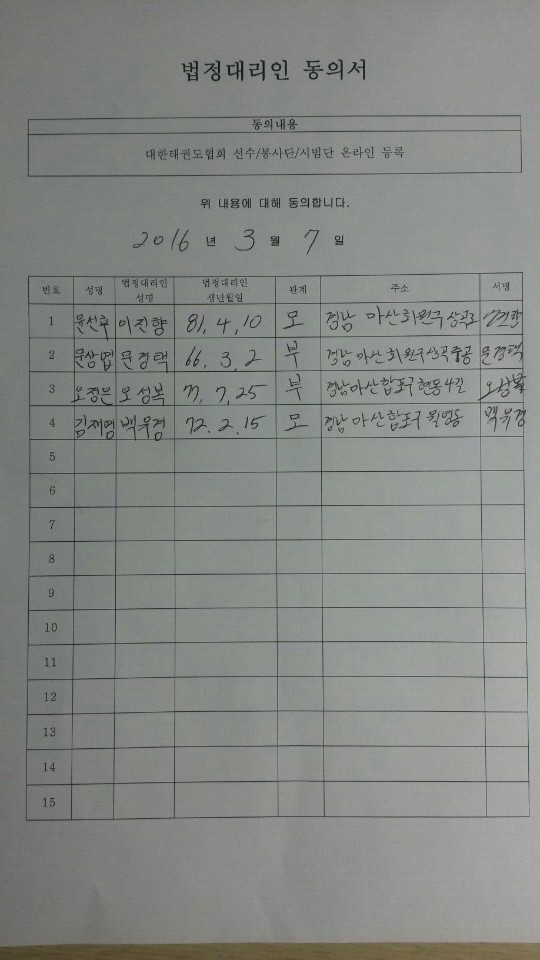 법정대리인 동의서
동의내용
대한태권도협회 선수/봉사단/시범단 온라인 등록
위 내용에 대해 동의합니다.
2016 년 3 월 7 일
번호 성명 법정대리인 성명 법정대리인 생년월일 관계 주소 서명
1 윤선후 이진향 81, 4, 10 모 경남 마산회원구
2 문상엽 문경택 66, 3, 2 부 경남 마산회원구 문경택
3 오정은 오성복 77, 7, 25 부 경남 마산합포구 현동4길
4 김재영 백유경 72. 2. 15 모 경남 마산합포구 월영동 백유경
5
6
7
8
9
10
11
12
13
14
15